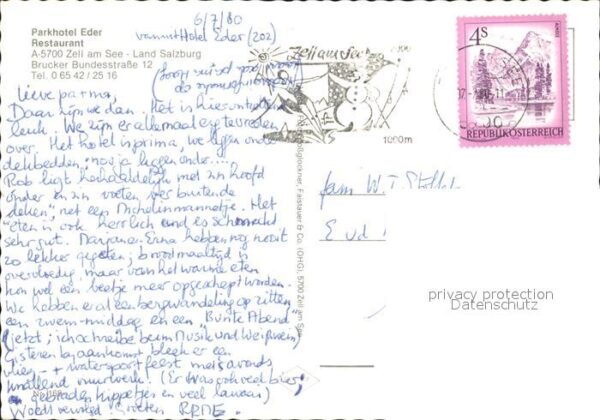 Parkhotel Eder
Restaurant
A-5700 Zell am See - Land Salzburg
Brucker Bundesstraße 12
Tel. 0 65 42 / 25 16
6/7/80
vanuit Hotel Eder (202)
Lieve pa + ma,
Daar zijn we dan. Het is hier
leuk. We zijn er allemaal erg tevreden
over. Het hotel is prima, we liggen onder
dekbedden, nou ja liggen onder...
Rob ligt herhaaldelijk met z'n hoofd
onder en z'n voeten buiten de
deken, net een Michelinmannetje. Het
eten is ook heerlijk en het smaakt
zeer gut. Erna hebben nog nooit
zo lekker gegeten; broodmaaltijd is
overvloedig, maar van het warme eten
kon wel een beetje meer opgeschept worden.
We hebben er al een bergwandeling op zitten
een zwem-middag en een "Bunte Abend"
(jetzt; ich schreibe beim Musik und Weißwein)
Gisteren bij aankomst bleek er een
vlieg- + watersportfeest met 's avonds
knallend vuurwerk. (Er was ook veel bier,
gebraden kippetjes en veel lawaai)
Wordt vervolgd. Groeten
Zell am See
1000m
4S
REPUBLIK ÖSTERREICH
Fam W.T.
Faissauer & Co. (OHG), 5700 Zell am See
privacy protection
Datenschutz